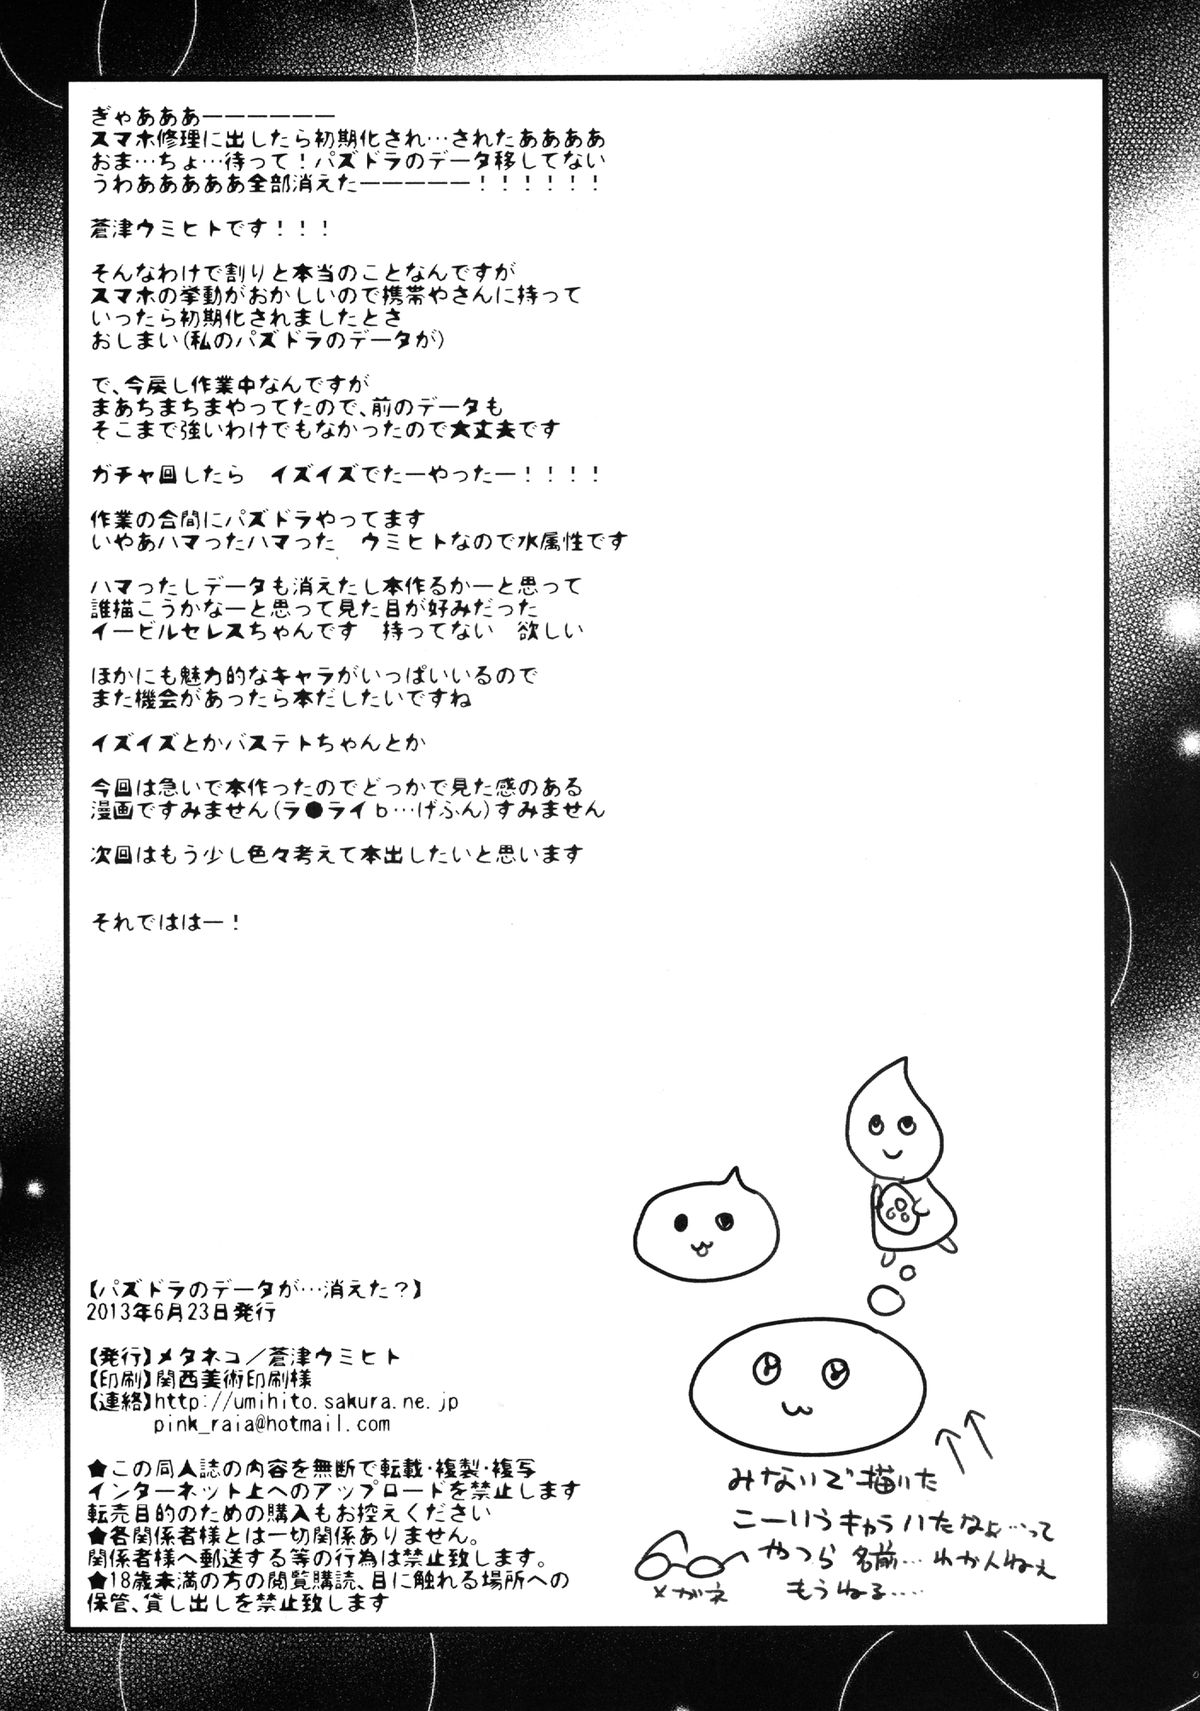 ぎゃあああーーーーーー
スマホ修理に出したら初期化され…されたああああ
おま…ちょ…待って！パズドラのデータ移してない
うわああああああ全部消えたーーーーー！！！！！！
蒼津ウミヒトです！！！
そんなわけで割りと本当のことなんですが
スマホの挙動がおかしいので携帯やさんに持って
いったら初期化されましたとさ
おしまい(私のパズドラのデータが)
で、今戻し作業中なんですが
まあちまちまやってたので、前のデータも
そこまで強いわけでもなかったので大丈夫です
ガチャ回したら　イズイズでたーやったー！！！！
作業の合間にパズドラやってます
いやあハマったハマった　ウミヒトなので水属性です
ハマったしデータも消えたし本作るかーと思って
誰描こうかなーと思って見た目が好みだった
イービルセレスちゃんです　持ってない　欲しい
ほかにも魅力的なキャラがいっぱいいるので
また機会があったら本だしたいですね
イズイズとかバステトちゃんとか
今回は急いで本作ったのでどっかで見た感のある
漫画ですみません(ラ●ライb…げふん)すみません
次回はもう少し色々考えて本出したいと思います
それでははー！
【パズドラのデータが…消えた？】
2013年6月23日発行
【発行】メタネコ／蒼津ウミヒト
【印刷】関西美術印刷様
【連絡】http://umihito.sakura.ne.jp
pink_raia@hotmail.com
★この同人誌の内容を無断で転載・複製・複写
インターネット上へのアップロードを禁止します
転売目的のための購入もお控えください
★各関係者様とは一切関係ありません。
関係者様へ郵送する等の行為は禁止致します。
★18歳未満の方の閲覧購読、目に触れる場所への
保管、貸し出しを禁止致します
みないで描いた
こーいうキャラいたなぁ…って
やつら 名前… わかんねぇ
もうねる….
メガネ